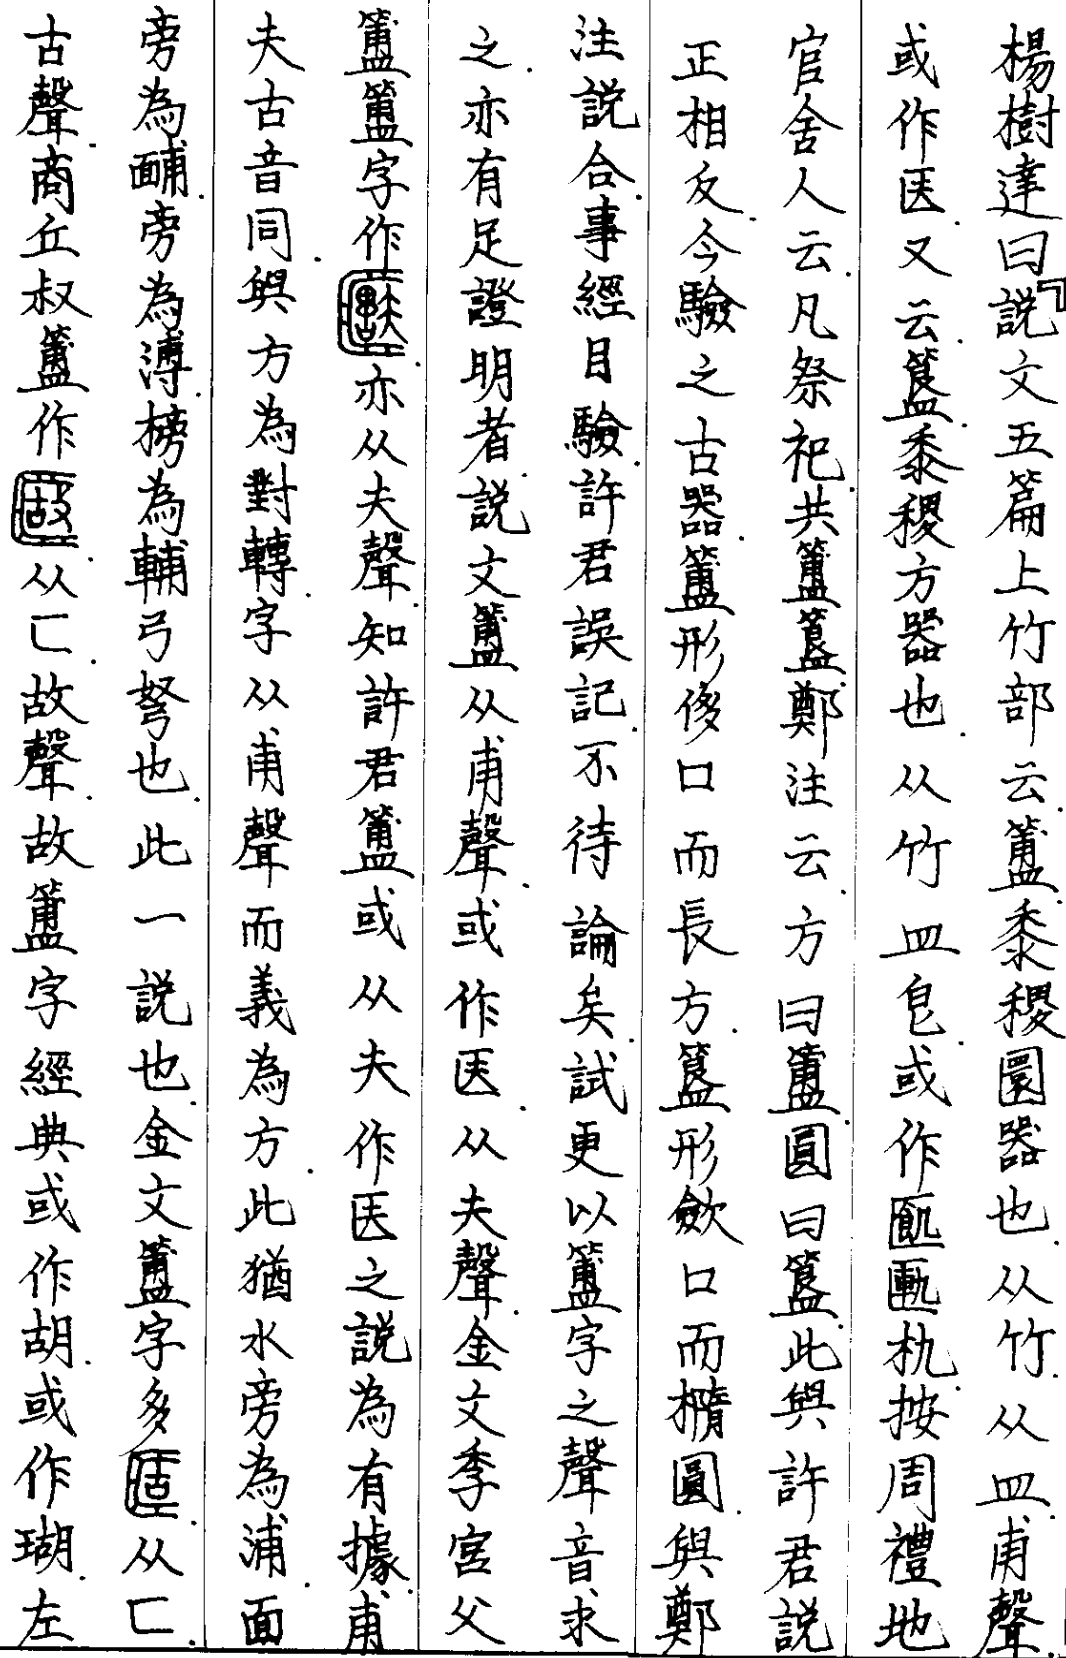 楊樹達曰「説文五篇上竹部云.簠黍稷圜器也.从竹.从皿甫聲.
或作医.又云簋黍稷方器也.从竹皿皀.或作匭匭朹.按周禮地
官舍人云.凡祭祀.共簠簋.鄭注云.方曰簠圓曰簋此與許君説
正相反.今驗之古器簠形侈口而長方.簋形斂口而橢圓.與鄭
注説合事經目驗.許君誤記.不待論矣試更以簠字之聲音求
之.亦有足證明者.説文簠从甫聲.或作医.从夫聲.金文季宮父
簠簠字作亦从夫聲.知許君簠或从夫作医之説為有據.甫
夫古音同.與方為對轉.字从甫聲而義為方.此猶水旁為浦.面
旁為酺.旁為溥.榜為輔.弓弩也.此一説也.金文簠字多从匚.
古聲.商丘叔簠作.从匚.故聲.故簠字經典或作胡.或作瑚.左